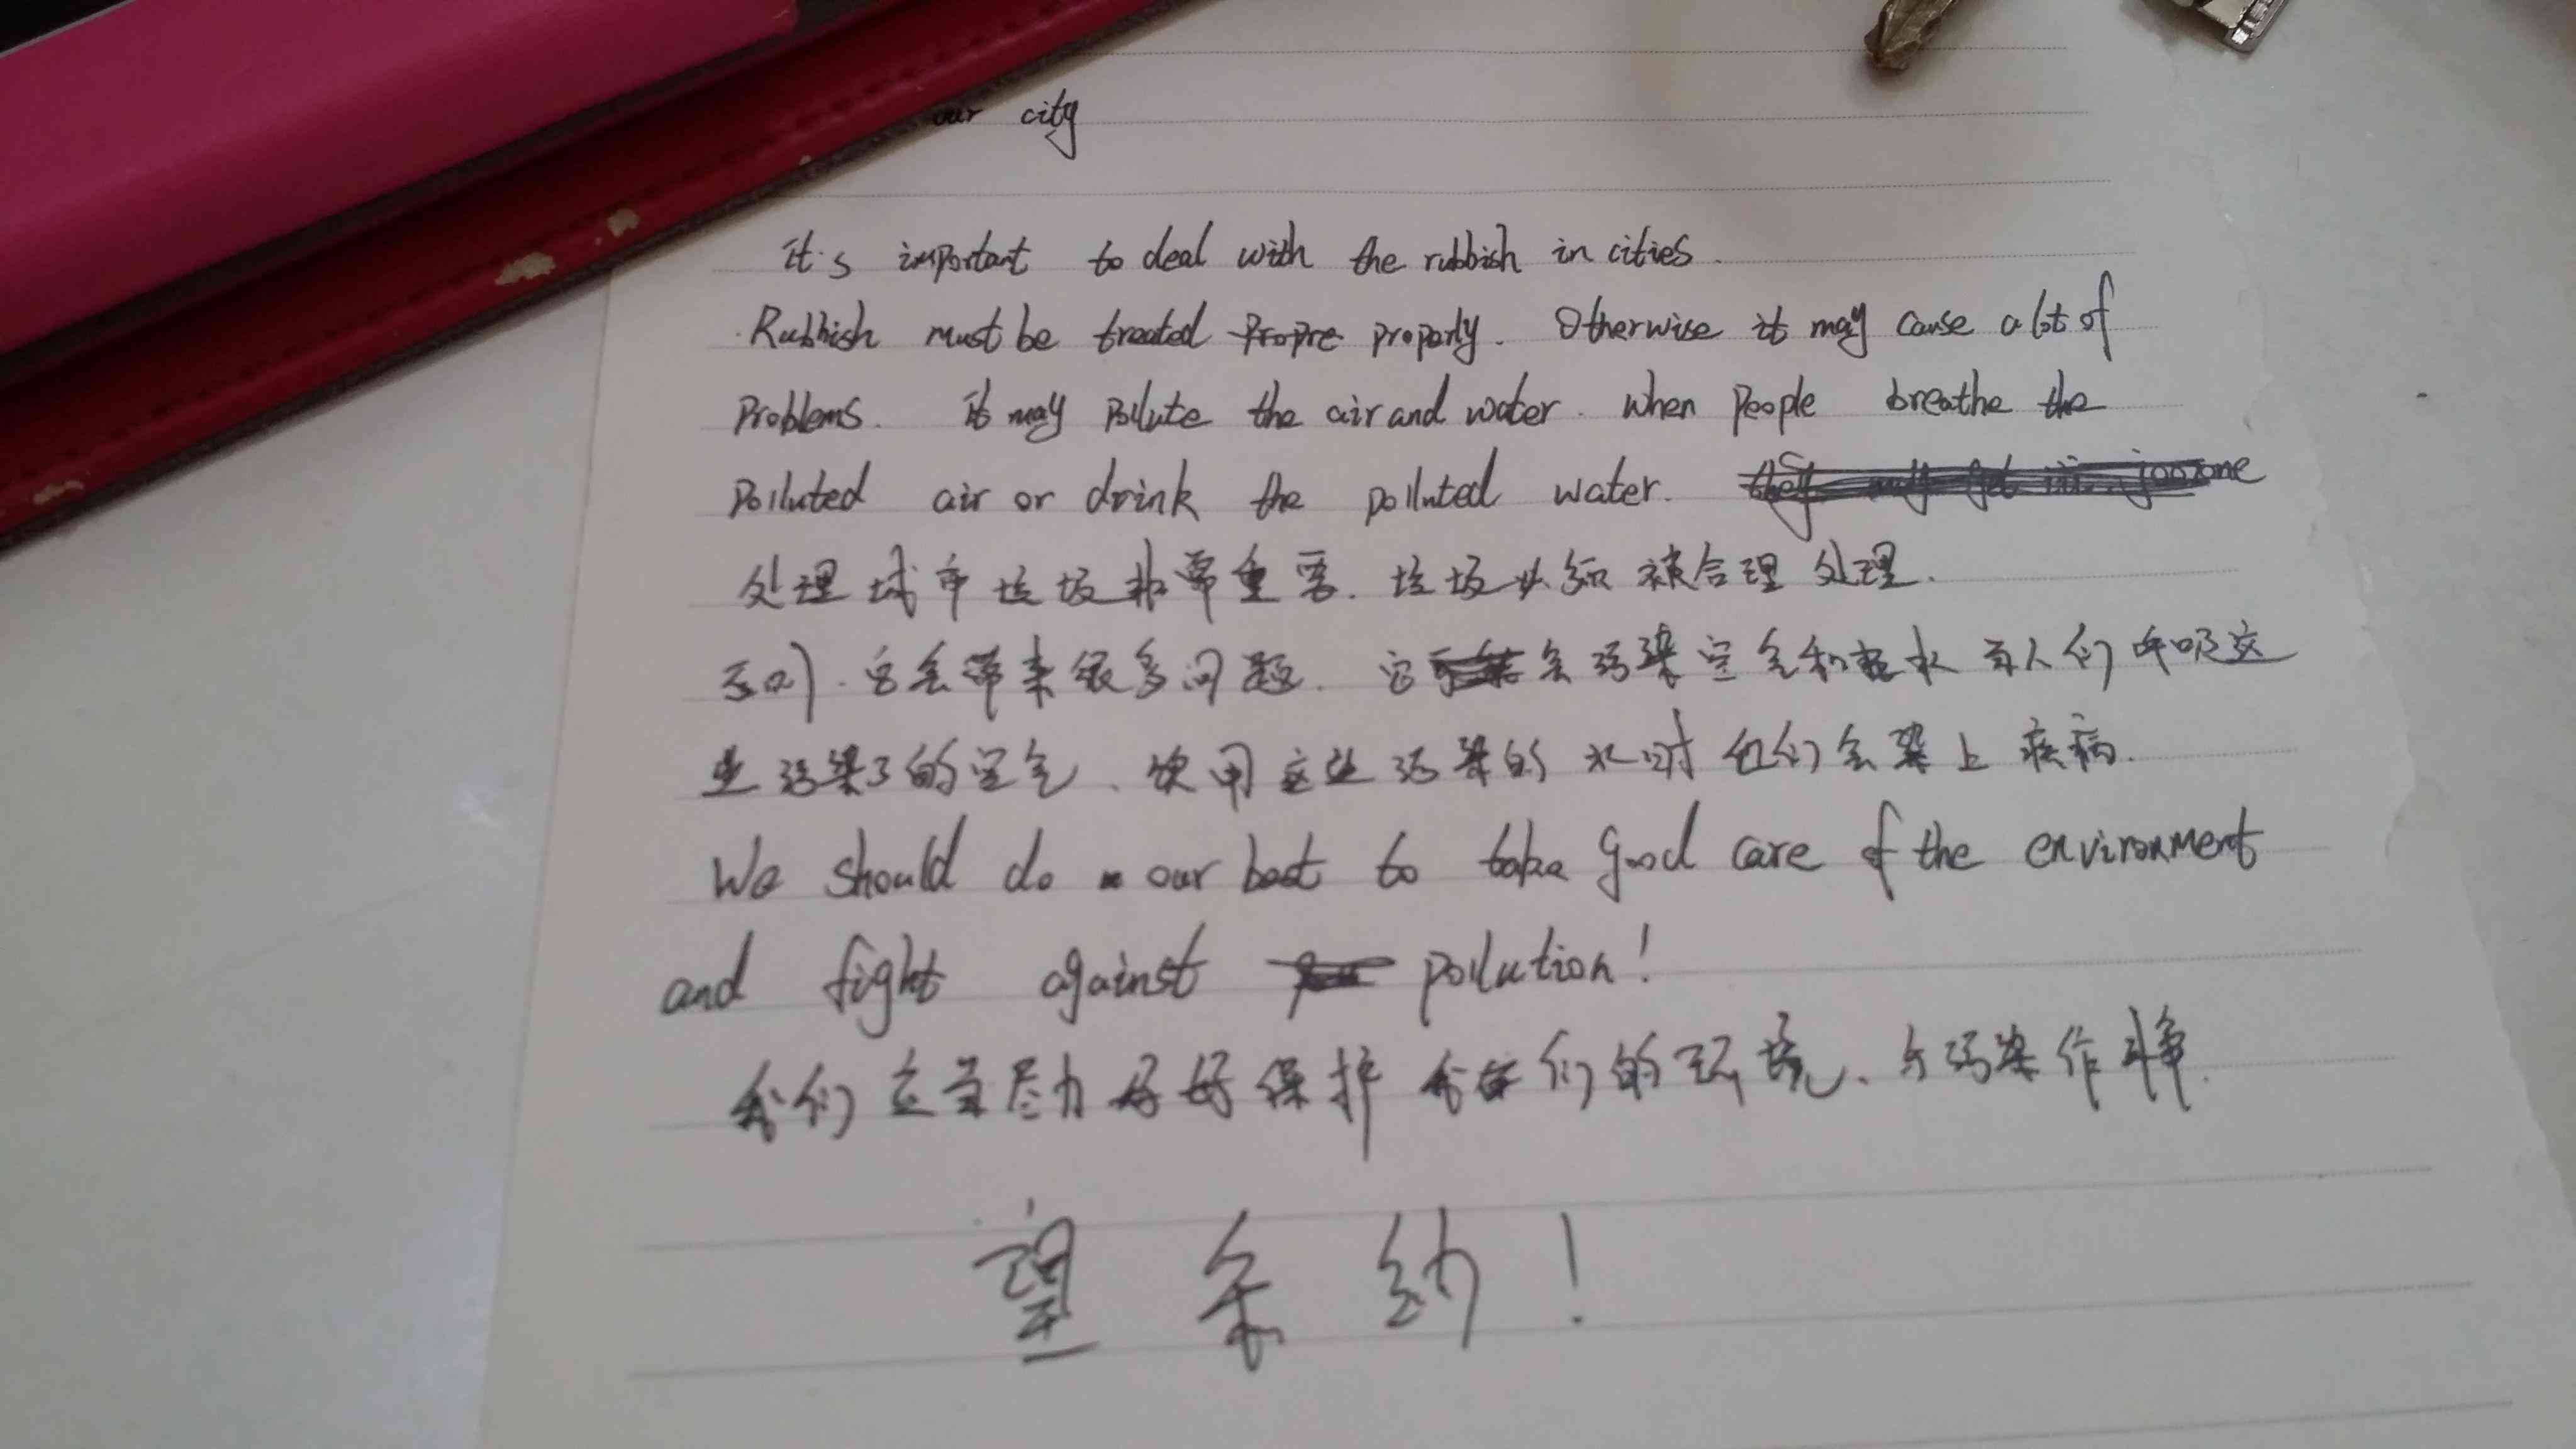 our city
It's important to deal with the rubbish in cities.
Rubbish must be treated Propre properly. Otherwise it may cause a lot of
Problems. It may Pollute the air and water. When People breathe the
Polluted air or drink the polluted water.
处理城市垃圾非常重要.垃圾必须被合理处理.
否则.它会带来很多问题.它会污染空气和水 当人们呼吸这
些污染了的空气、饮用这些污染的水时他们会染上疾病.
We should do our best to take good care of the environment
and fight against pollution!
我们应当尽力好好保护我们的环境、与污染作斗争.
望采纳!